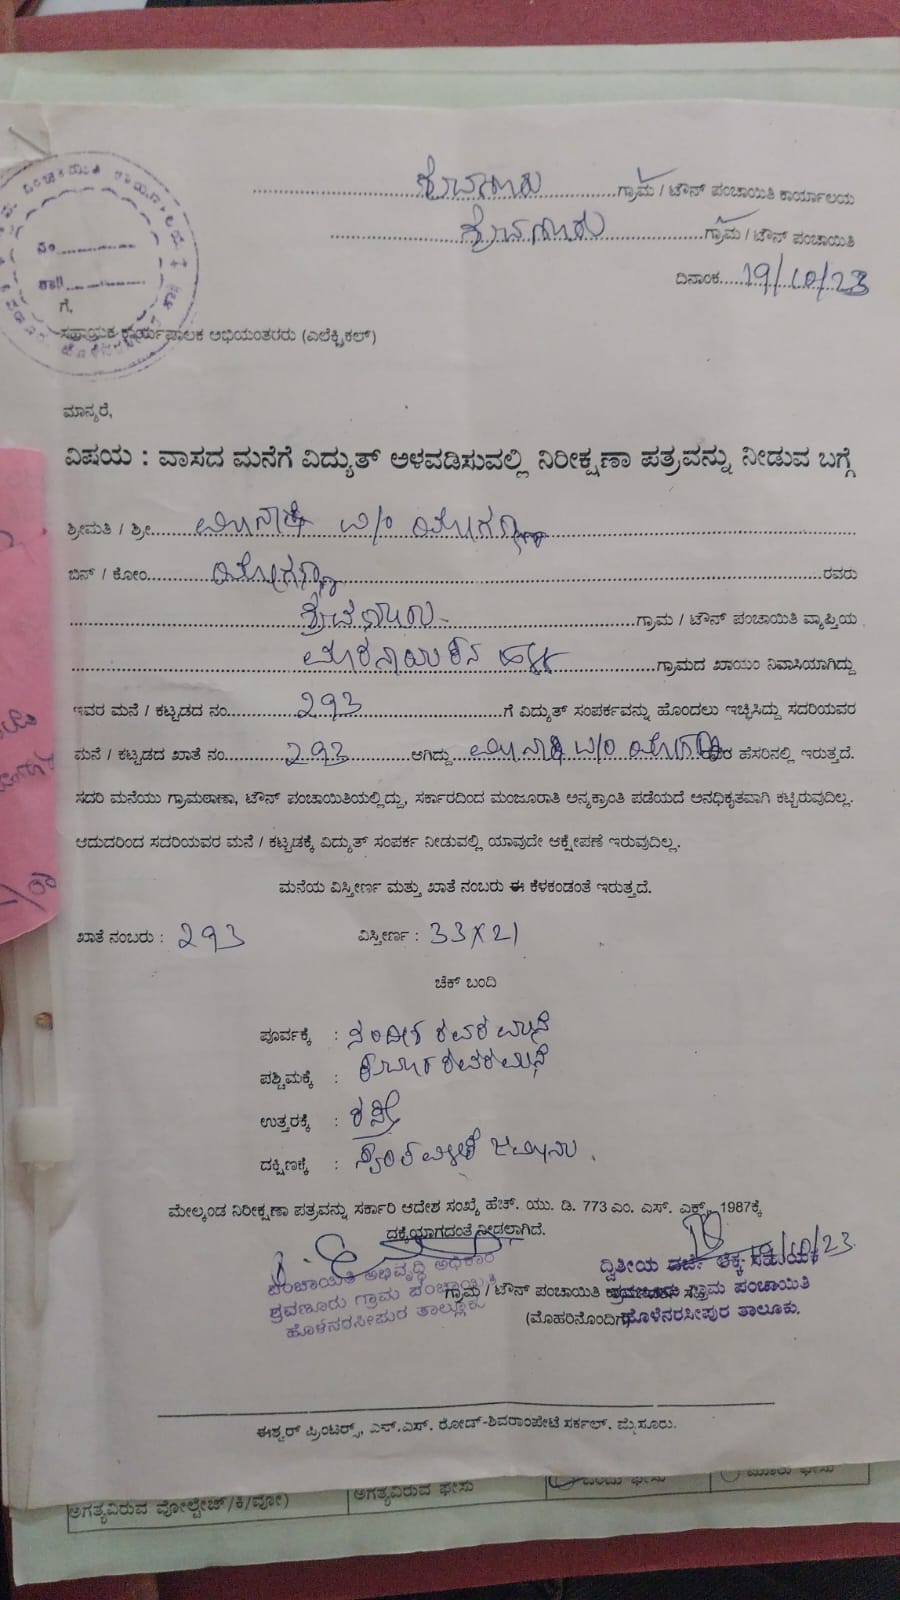 ಶ್ರವಣೂರು ಗ್ರಾಮ / ಟೌನ್ ಪಂಚಾಯಿತಿ ಕಾರ್ಯಾಲಯ
ಶ್ರವಣೂರು ಗ್ರಾಮ / ಟೌನ್ ಪಂಚಾಯಿತಿ
ದಿನಾಂಕ 19/10/23
ನಂ
ಗೆ,
ಸಹಾಯಕ ಕಾರ್ಯಪಾಲಕ ಅಭಿಯಂತರರು (ಎಲೆಕ್ಟ್ರಿಕಲ್)
ಮಾನ್ಯರೆ,
ವಿಷಯ : ವಾಸದ ಮನೆಗೆ ವಿದ್ಯುತ್ ಅಳವಡಿಸುವಲ್ಲಿ ನಿರೀಕ್ಷಣಾ ಪತ್ರವನ್ನು ನೀಡುವ ಬಗ್ಗೆ
ಶ್ರೀಮತಿ / ಶ್ರೀ ಮೀನಾಕ್ಷಿ W/o ಯೋಗಣ್ಣ
ಬಿನ್ / ಕೋಂ ಯೋಗಣ್ಣ ರವರು
ಶ್ರವಣೂರು ಗ್ರಾಮ / ಟೌನ್ ಪಂಚಾಯಿತಿ ವ್ಯಾಪ್ತಿಯ
ಗ್ರಾಮದ ಖಾಯಂ ನಿವಾಸಿಯಾಗಿದ್ದು
ಇವರ ಮನೆ / ಕಟ್ಟಡದ ನಂ 293 ಗೆ ವಿದ್ಯುತ್ ಸಂಪರ್ಕವನ್ನು ಹೊಂದಲು ಇಚ್ಛಿಸಿದ್ದು ಸದರಿಯವರ
ಮನೆ / ಕಟ್ಟಡದ ಖಾತೆ ನಂ 293 ಆಗಿದ್ದು ಮೀನಾಕ್ಷಿ W/o ಯೋಗಣ್ಣ ರವರ ಹೆಸರಿನಲ್ಲಿ ಇರುತ್ತದೆ.
ಸದರಿ ಮನೆಯು ಗ್ರಾಮಠಾಣಾ, ಟೌನ್ ಪಂಚಾಯಿತಿಯಲ್ಲಿದ್ದು, ಸರ್ಕಾರದಿಂದ ಮಂಜೂರಾತಿ ಅನ್ಯಕ್ರಾಂತಿ ಪಡೆಯದೆ ಅನಧಿಕೃತವಾಗಿ ಕಟ್ಟಿರುವುದಿಲ್ಲ.
ಆದುದರಿಂದ ಸದರಿಯವರ ಮನೆ / ಕಟ್ಟಡಕ್ಕೆ ವಿದ್ಯುತ್ ಸಂಪರ್ಕ ನೀಡುವಲ್ಲಿ ಯಾವುದೇ ಆಕ್ಷೇಪಣೆ ಇರುವುದಿಲ್ಲ.
ಮನೆಯ ವಿಸ್ತೀರ್ಣ ಮತ್ತು ಖಾತೆ ನಂಬರು ಈ ಕೆಳಕಂಡಂತೆ ಇರುತ್ತದೆ.
ಖಾತೆ ನಂಬರು : 293 ವಿಸ್ತೀರ್ಣ : 33X21
ಚೆಕ್ ಬಂದಿ
ಪೂರ್ವಕ್ಕೆ : ರವರ ಮನೆ
ಪಶ್ಚಿಮಕ್ಕೆ : ರವರ ಮನೆ
ಉತ್ತರಕ್ಕೆ : ರಸ್ತೆ
ದಕ್ಷಿಣಕ್ಕೆ : ಜಮೀನು
ಮೇಲ್ಕಂಡ ನಿರೀಕ್ಷಣಾ ಪತ್ರವನ್ನು ಸರ್ಕಾರಿ ಆದೇಶ ಸಂಖ್ಯೆ ಹೆಚ್. ಯು. ಡಿ. 773 ಎಂ. ಎಸ್. ಎಕ್ಸ್, 1987ಕ್ಕೆ
ದಕ್ಕೆಯಾಗದಂತೆ ನೀಡಲಾಗಿದೆ.
19/10/23
ಪಂಚಾಯಿತಿ ಅಭಿವೃದ್ಧಿ ಅಧಿಕಾರಿ
ಶ್ರವಣೂರು ಗ್ರಾಮ ಪಂಚಾಯಿತಿ
ಹೊಳೆನರಸೀಪುರ ತಾಲ್ಲೂಕು
ಗ್ರಾಮ / ಟೌನ್ ಪಂಚಾಯಿತಿ
(ಮೊಹರಿನೊಂದಿಗೆ)
ದ್ವಿತೀಯ ದರ್ಜೆ ಲೆಕ್ಕ ಸಹಾಯಕ
ಶ್ರವಣೂರು ಗ್ರಾಮ ಪಂಚಾಯಿತಿ
ಹೊಳೆನರಸೀಪುರ ತಾಲೂಕು.
ಈಶ್ವರ್ ಪ್ರಿಂಟರ್ಸ್, ಎನ್.ಎಸ್. ರೋಡ್-ಶಿವರಾಂಪೇಟೆ ಸರ್ಕಲ್. ಮೈಸೂರು.
ಅಗತ್ಯವಿರುವ ವೋಲ್ಟೇಜ್/ಕಿ/ವೋ) ಅಗತ್ಯವಿರುವ ಫೇಸು ಒಂದು ಫೇಸು ಮೂರು ಫೇಸು